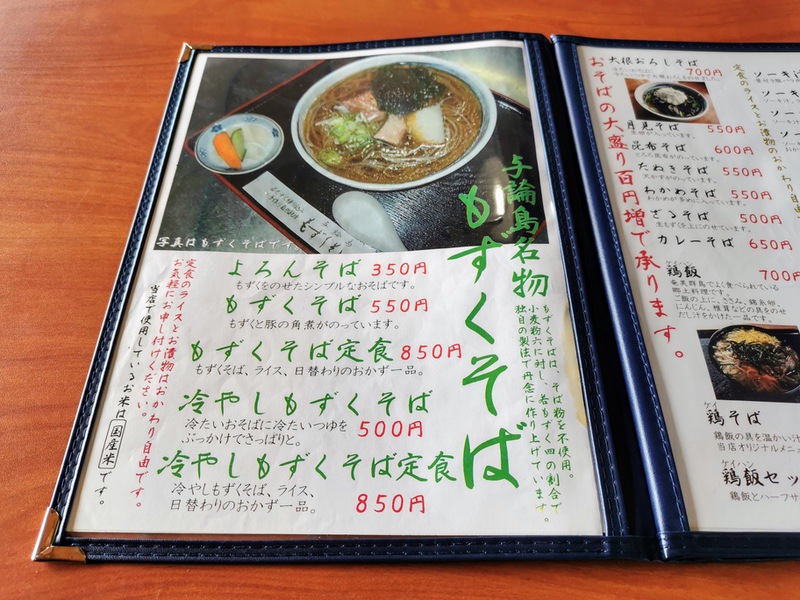 与論島名物
もずくそば
もずくそばは、そば粉を不使用。
小麦粉六に対し、若もずく四の割合で
独自の製法で丹念に作り上げています。
写真はもずくそばです。
よろんそば 350円
もずくをのせたシンプルなおそばです。
もずくそば 550円
もずくと豚の角煮がのっています。
もずくそば定食 850円
もずくそば、ライス、日替わりのおかず一品。
冷やしもずくそば
冷たいおそばに冷たいつゆを
ぶっかけでさっぱりと。
500円
冷やしもずくそば定食
冷やしもずくそば、ライス、
日替わりのおかず一品。
850円
定食のライスとお漬物はおかわり自由です。
お気軽にお申し付けください。
当店で使用しているお米は国産米です。
大根おろしそば
700円
月見そば 550円
昆布そば 600円
とろろ昆布がのっています。
たぬきそば 550円
天かすがのっています。
わかめそば 550円
わかめが多めに入っています。
ざるそば 500円
生もずくを上にのせています。
カレーそば 650円
ケイハン
鶏飯 700円
奄美群島でよく食べられている
郷土料理です。
ご飯の上に、ささみ、錦糸卵、
にんじん、椎茸などの具をのせ
だし汁をかけた一品です。
おそばの大盛り百円増で承ります。
定食のライスとお漬物のおかわり自由
ケイ
鶏そば
鶏飯の具を温かい汁
当店オリジナルメニ
ケイハン
鶏飯セッ
鶏飯とハーフサ
ソーキ汁
ソーキ
ソー
ソー